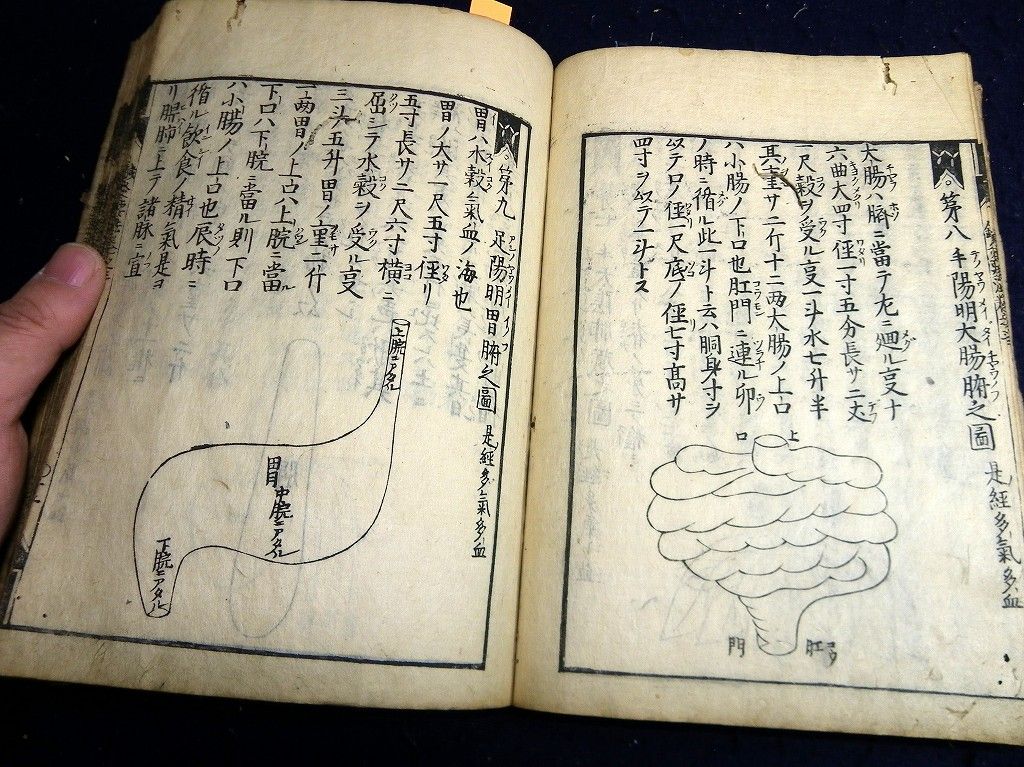 第八 手陽明大腸腑之圖 是經多氣多血
大腸ハ臍ニ當テ左ニ廻ル叓十
六曲大四寸徑一寸五分長サ二丈
一尺穀ヲ受ル叓一斗水七升半
其重サ二斤十二両大腸ノ上口
ハ小腸ノ下口也肛門ニ連ル卯
ノ時ニ循ル此一斗ト云ハ胴身寸ヲ
以テ口ノ徑一尺底ノ徑七寸髙サ
四寸ヲ以テ一斗トス
上口
肛門
第九 足陽明胃腑之圖 是經多氣多血
胃ハ水穀氣血ノ海也
胃ノ大サ一尺五寸徑リ
五寸長サ二尺六寸横ニ
屈シテ水穀ヲ受ル叓
三斗五升胃ノ重二斤
一両胃ノ上口ハ上脘ニ當ル
下口ハ下脘ニ當ル則下口
ハ小腸ノ上口也辰時ニ
循ル飲食ノ精氣是ヨ
リ脾肺ニ上テ諸脉ニ宣
上脘ニアタル
胃
中脘ニアタル
下脘ニアタル